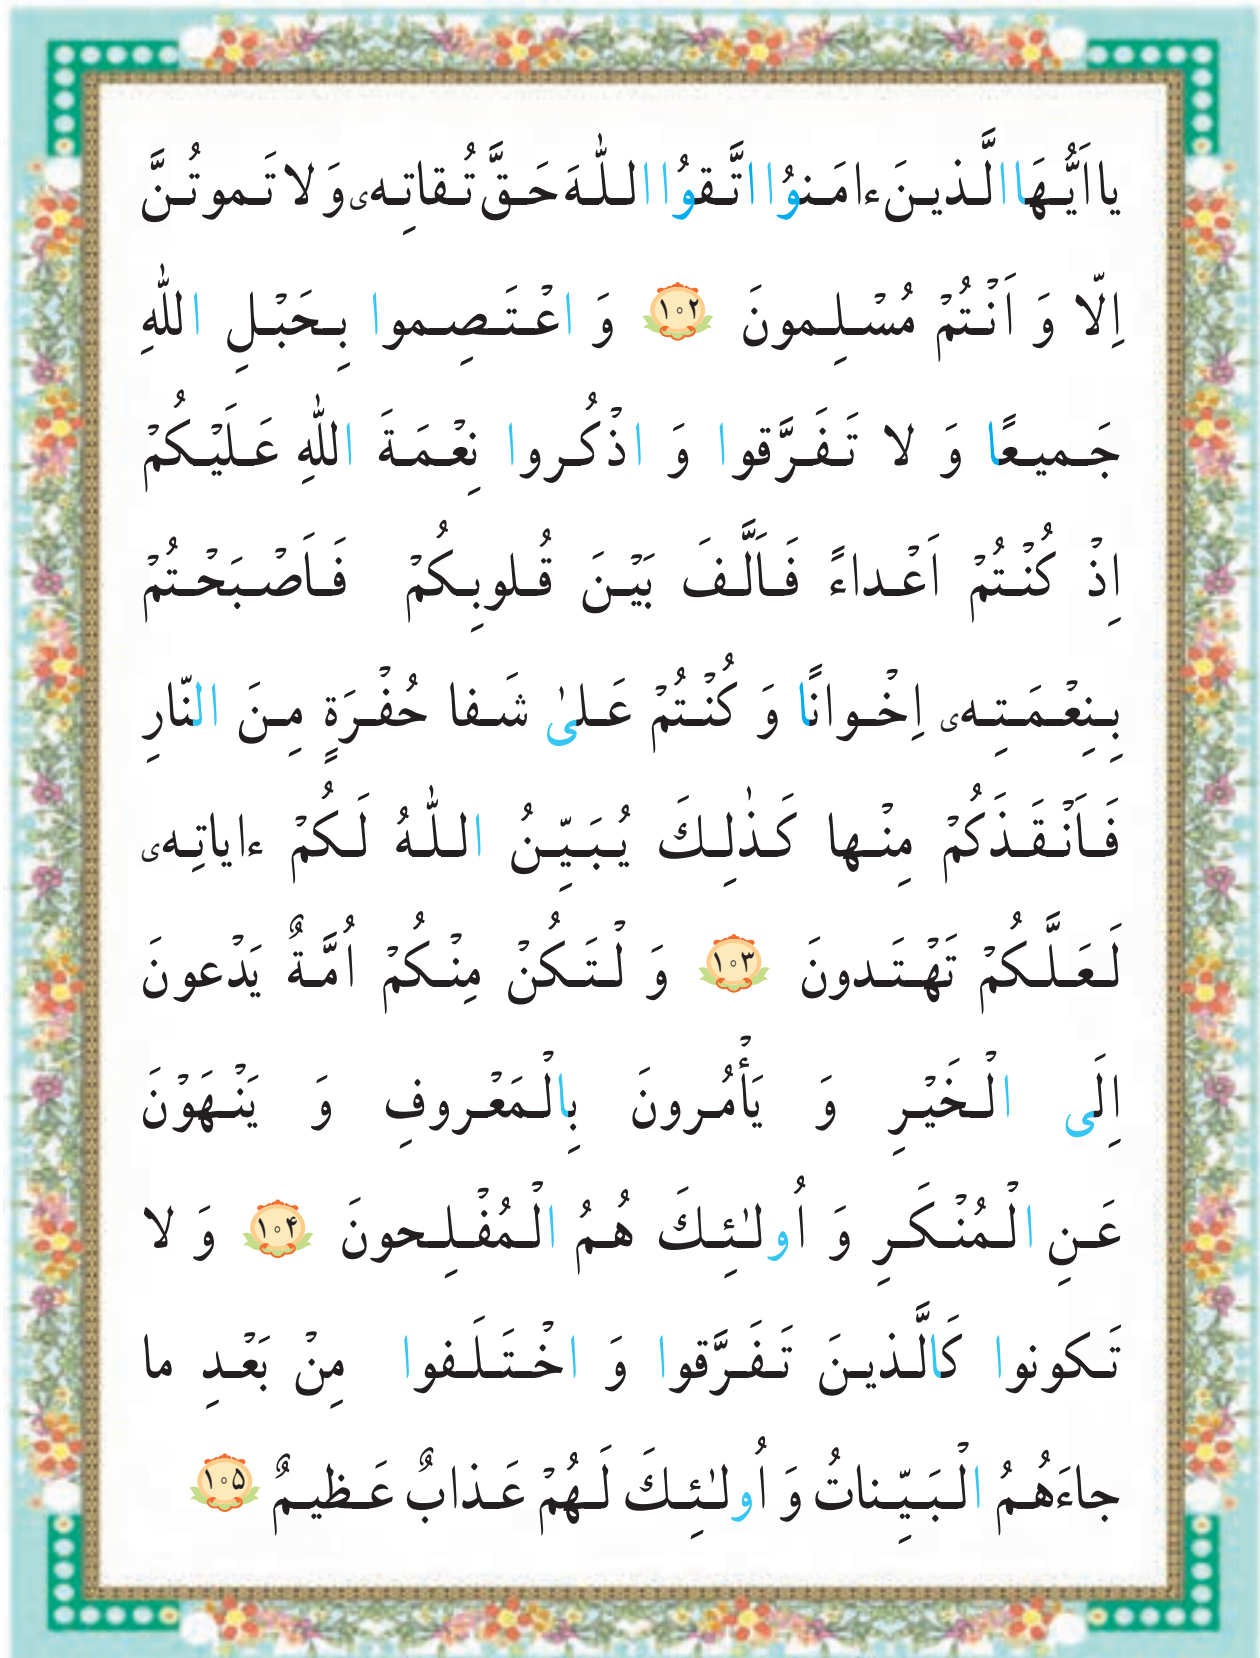 يا اَيُّهَا الَّذينَ ءامَنوُا اتَّقوُا اللّٰهَ حَقَّ تُقاتِهٖ وَ لا تَموتُنَّ
اِلّا وَ اَنْتُمْ مُسْلِمونَ ١٠٢ وَ اعْتَصِموا بِحَبْلِ اللّٰهِ
جَميعًا وَ لا تَفَرَّقوا وَ اذْكُروا نِعْمَةَ اللّٰهِ عَلَيْكُمْ
اِذْ كُنْتُمْ اَعْداءً فَاَلَّفَ بَيْنَ قُلوبِكُمْ فَاَصْبَحْتُمْ
بِنِعْمَتِهٖ اِخْوانًا وَ كُنْتُمْ عَلىٰ شَفا حُفْرَةٍ مِنَ النّارِ
فَاَنْقَذَكُمْ مِنْها كَذٰلِكَ يُبَيِّنُ اللّٰهُ لَكُمْ ءاياتِهٖ
لَعَلَّكُمْ تَهْتَدونَ ١٠٣ وَ لْتَكُنْ مِنْكُمْ اُمَّةٌ يَدْعونَ
اِلَى الْخَيْرِ وَ يَأْمُرونَ بِالْمَعْروفِ وَ يَنْهَوْنَ
عَنِ الْمُنْكَرِ وَ اُولـٰئِكَ هُمُ الْمُفْلِحونَ ١٠۴ وَ لا
تَكونوا كَالَّذينَ تَفَرَّقوا وَ اخْتَلَفوا مِنْ بَعْدِ ما
جاءَهُمُ الْبَيِّناتُ وَ اُولـٰئِكَ لَهُمْ عَذابٌ عَظيمٌ ١٠۵